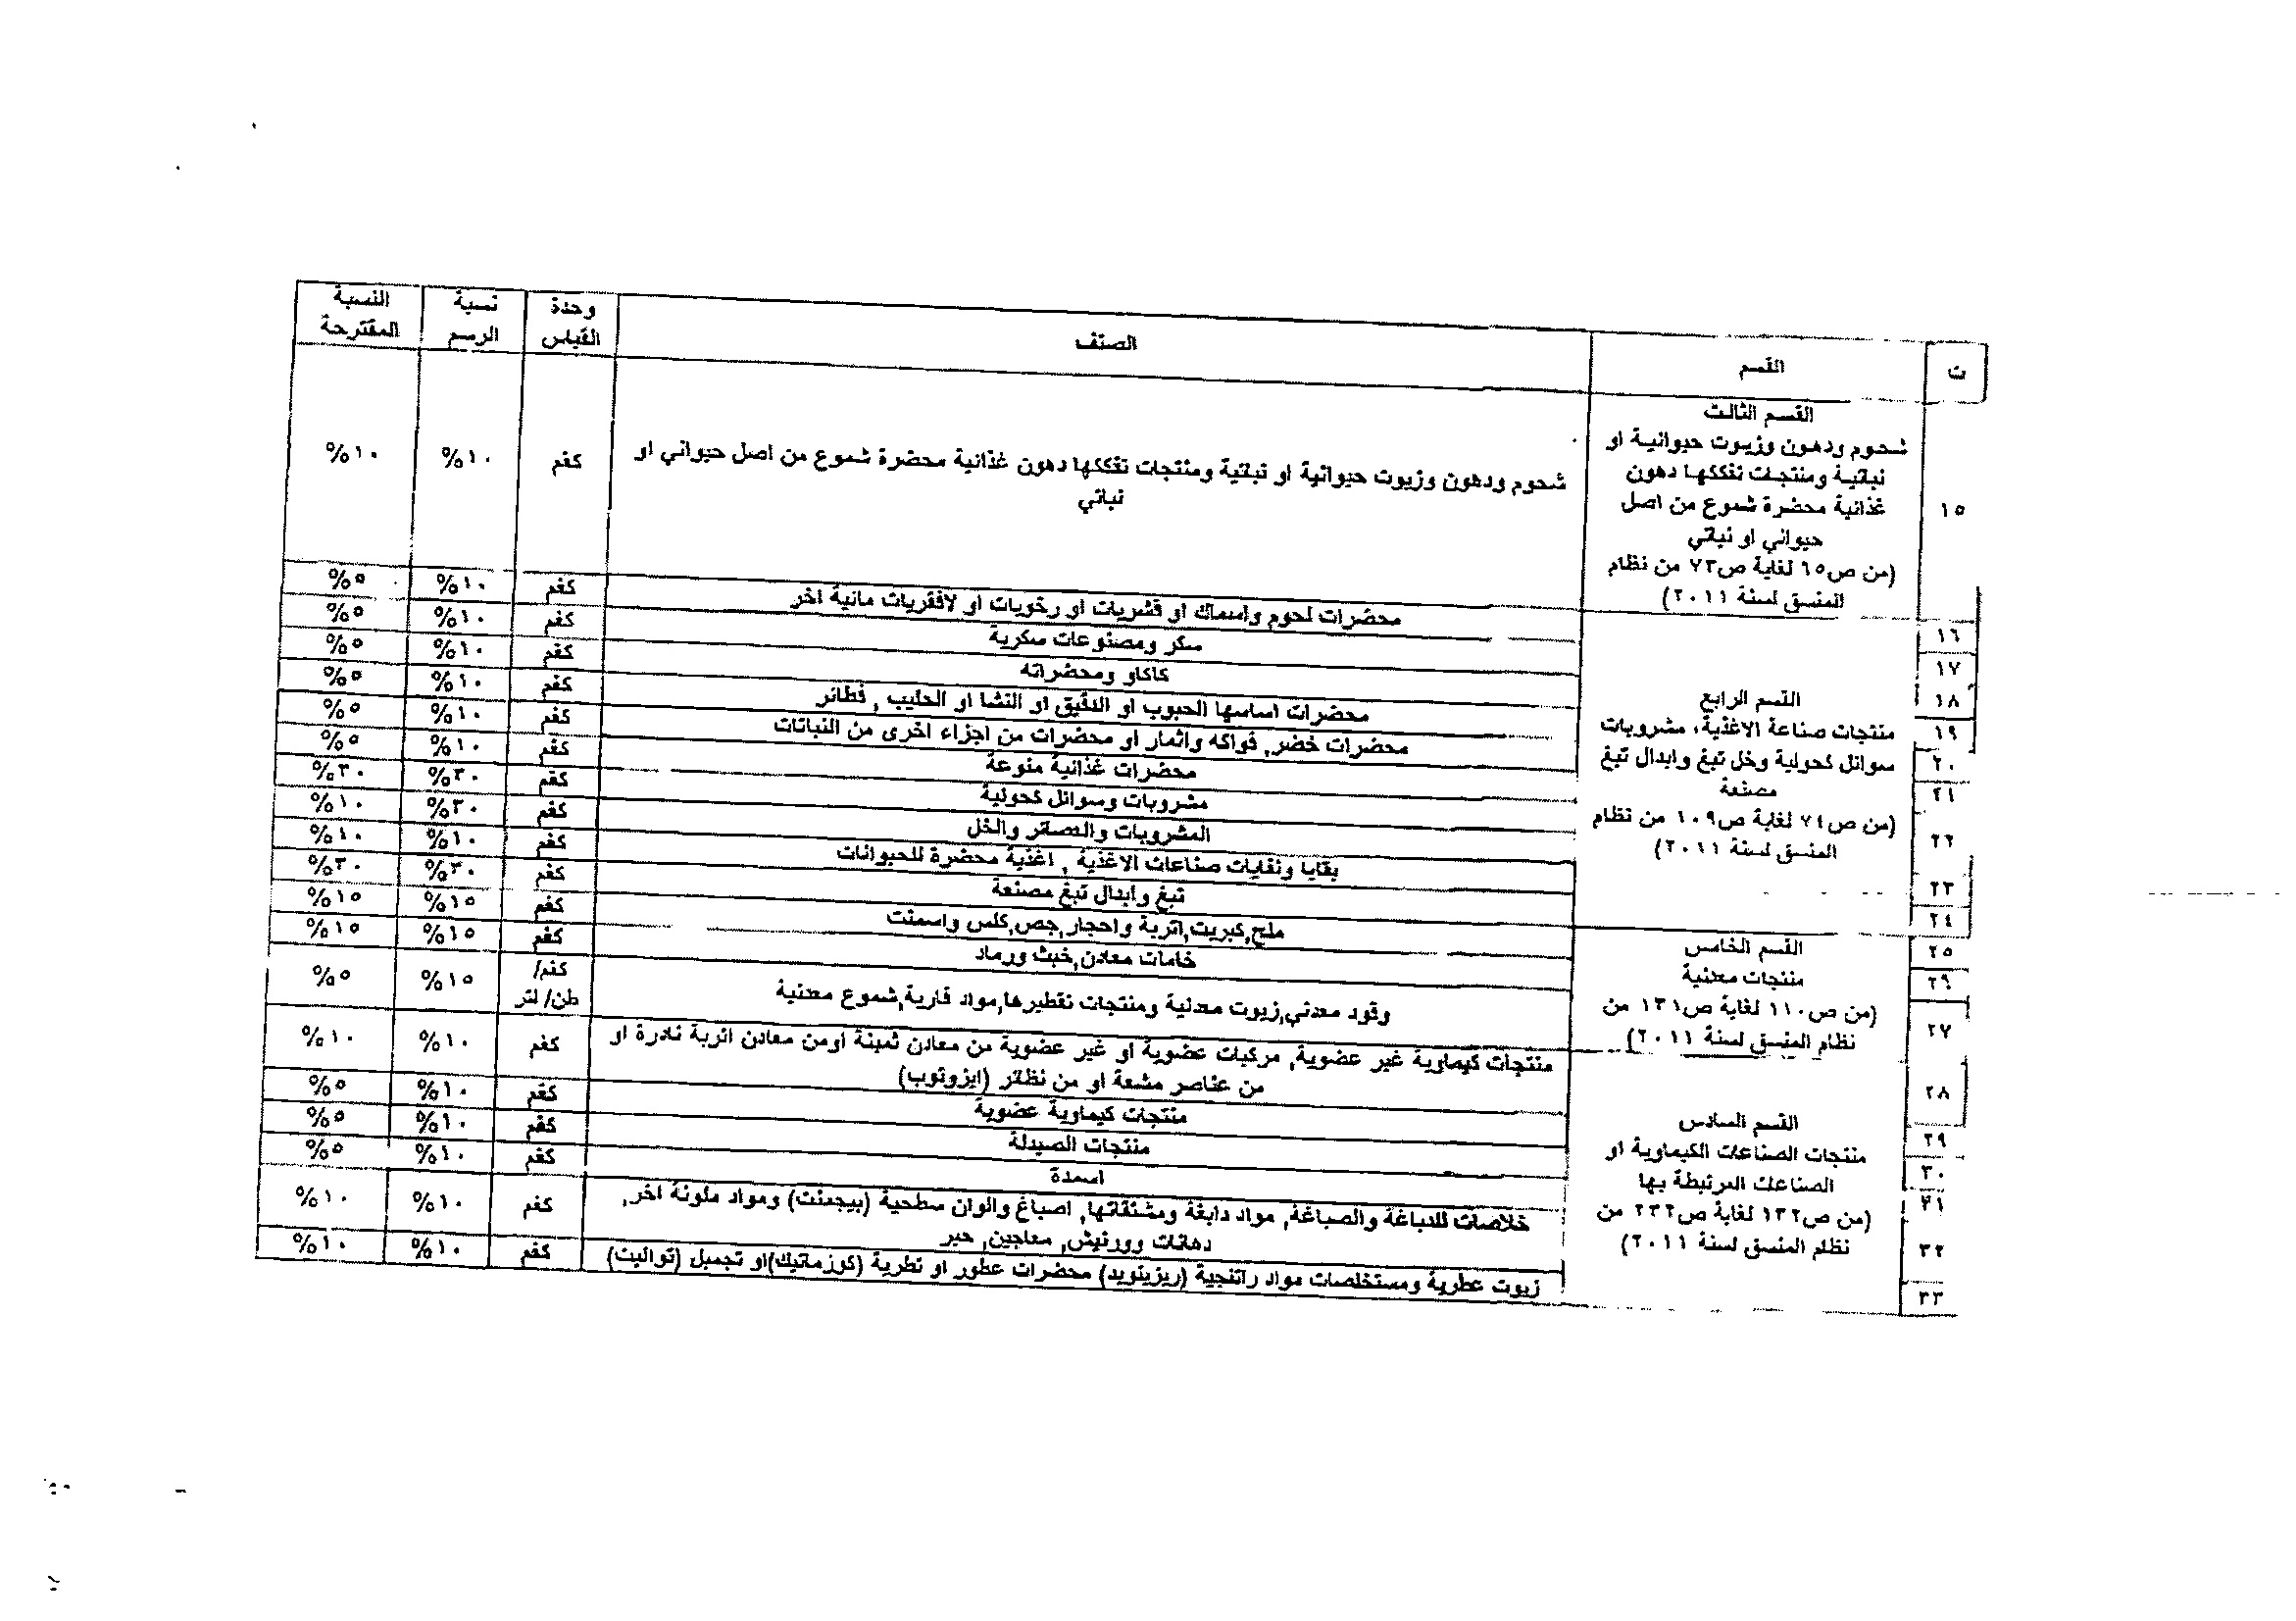 ت
القسم
الصنف
وحدة
القياس
نسبة
الرسم
النسبة
المقترحة
١٥
القسم الثالث
شحوم ودهون وزيوت حيوانية او
نباتية ومنتجات تفككها دهون
غذائية محضرة شموع من اصل
حيواني او نباتي
(من ص٦٥ لغاية ص٧٣ من نظام
المنسق لسنة ٢٠١١)
شحوم ودهون وزيوت حيوانية او نباتية ومنتجات تفككها دهون غذائية محضرة شموع من اصل حيواني او
نباتي
كغم
١٠%
١٠%
القسم الرابع
منتجات صناعة الاغذية، مشروبات
سوائل كحولية وخل تبغ وابدال تبغ
مصنعة
(من ص٧٤ لغاية ص١٠٩ من نظام
المنسق لسنة ٢٠١١)
١٦
محضرات لحوم واسماك او قشريات او رخويات او لافقريات مائية اخر
كغم
١٠%
٥%
١٧
سكر ومصنوعات سكرية
كغم
١٠%
٥%
١٨
كاكاو ومحضراته
كغم
١٠%
٥%
١٩
محضرات اساسها الحبوب او الدقيق او النشا او الحليب , فطائر
كغم
١٠%
٥%
٢٠
محضرات خضر, فواكه واثمار او محضرات من اجزاء اخرى من النباتات
كغم
١٠%
٥%
٢١
محضرات غذائية منوعة
كغم
١٠%
٥%
٢٢
مشروبات وسوائل كحولية
كغم
٣٠%
٣٠%
المشروبات والعصائر والخل
كغم
٣٠%
١٠%
٢٣
بقايا ونفايات صناعات الاغذية , اغذية محضرة للحيوانات
كغم
١٠%
١٠%
٢٤
تبغ وابدال تبغ مصنعة
كغم
٣٠%
٣٠%
القسم الخامس
منتجات معدنية
(من ص١١٠ لغاية ص١٣١ من
نظام المنسق لسنة ٢٠١١)
٢٥
ملح,كبريت,اتربة واحجار,جص,كلس واسمنت
كغم
١٥%
١٥%
٢٦
خامات معادن,خبث ورماد
كغم
١٥%
١٥%
٢٧
وقود معدني,زيوت معدنية ومنتجات تقطيرها,مواد قارية,شموع معدنية
كغم/
طن/ لتر
١٥%
٥%
القسم السادس
منتجات الصناعات الكيماوية او
الصناعات المرتبطة بها
(من ص١٣٢ لغاية ص٢٣٢ من
نظام المنسق لسنة ٢٠١١)
٢٨
منتجات كيماوية غير عضوية, مركبات عضوية او غير عضوية من معادن ثمينة اومن معادن اتربة نادرة او
من عناصر مشعة او من نظائر (ايزوتوب)
كغم
١٠%
١٠%
٢٩
منتجات كيماوية عضوية
كغم
١٠%
٥%
٣٠
منتجات الصيدلة
كغم
١٠%
٥%
٣١
اسمدة
كغم
١٠%
٥%
٣٢
خلاصات للدباغة والصباغة, مواد دابغة ومشتقاتها, اصباغ والوان سطحية (بيجمنت) ومواد ملونة اخر,
دهانات وورنيش, معاجين, حبر
كغم
١٠%
١٠%
٣٣
زيوت عطرية ومستخلصات مواد راتنجية (ريزينويد) محضرات عطور او تطرية (كوزماتيك)او تجميل (تواليت)
كغم
١٠%
١٠%